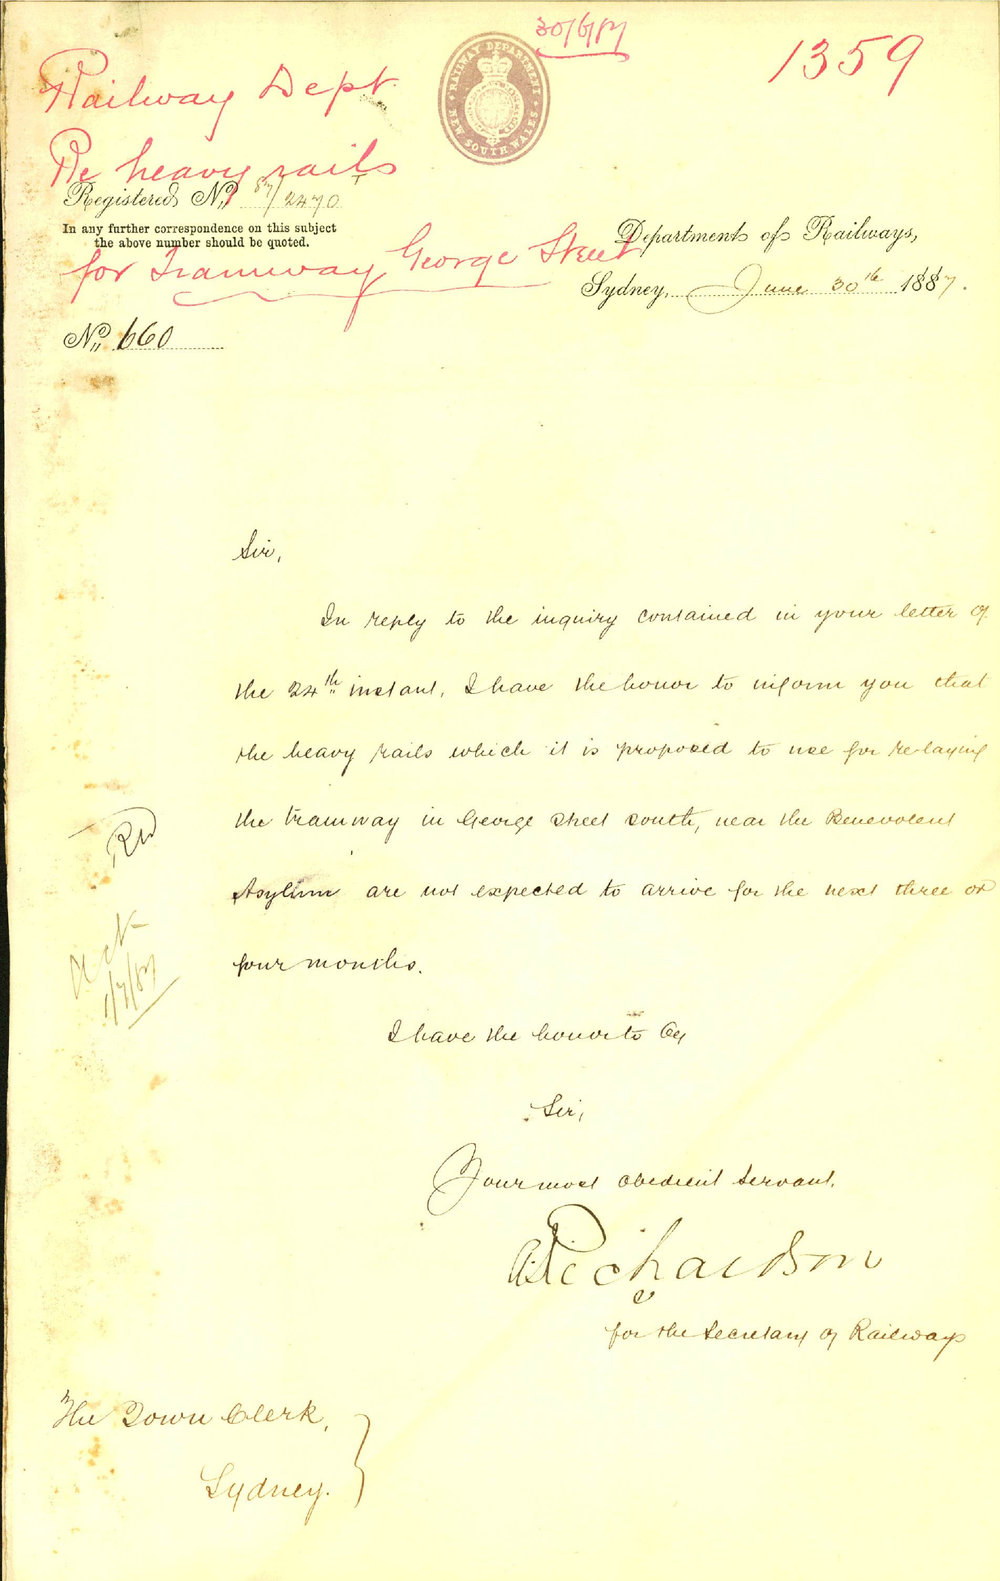 30/6/87
1359
RAILWAY DEPARTMENT
NEW SOUTH WALES
Railway Dept
Re heavy rails
Registered No. 87/2470
In any further correspondence on this subject
the above number should be quoted.
for Tramway George Street
Department of Railways,
Sydney, June 30th 1887.
No. 660
Sir,
In reply to the inquiry contained in your letter of
the 24th instant, I have the honor to inform you that
the heavy rails which it is proposed to use for re-laying
the tramway in George Street South, near the Benevolent
Asylum are not expected to arrive for the next three or
four months.
I have the honor to be
Sir,
Your most obedient servant,
Richardson
for the Secretary of Railways
1/7/87
The Town Clerk,
Sydney.